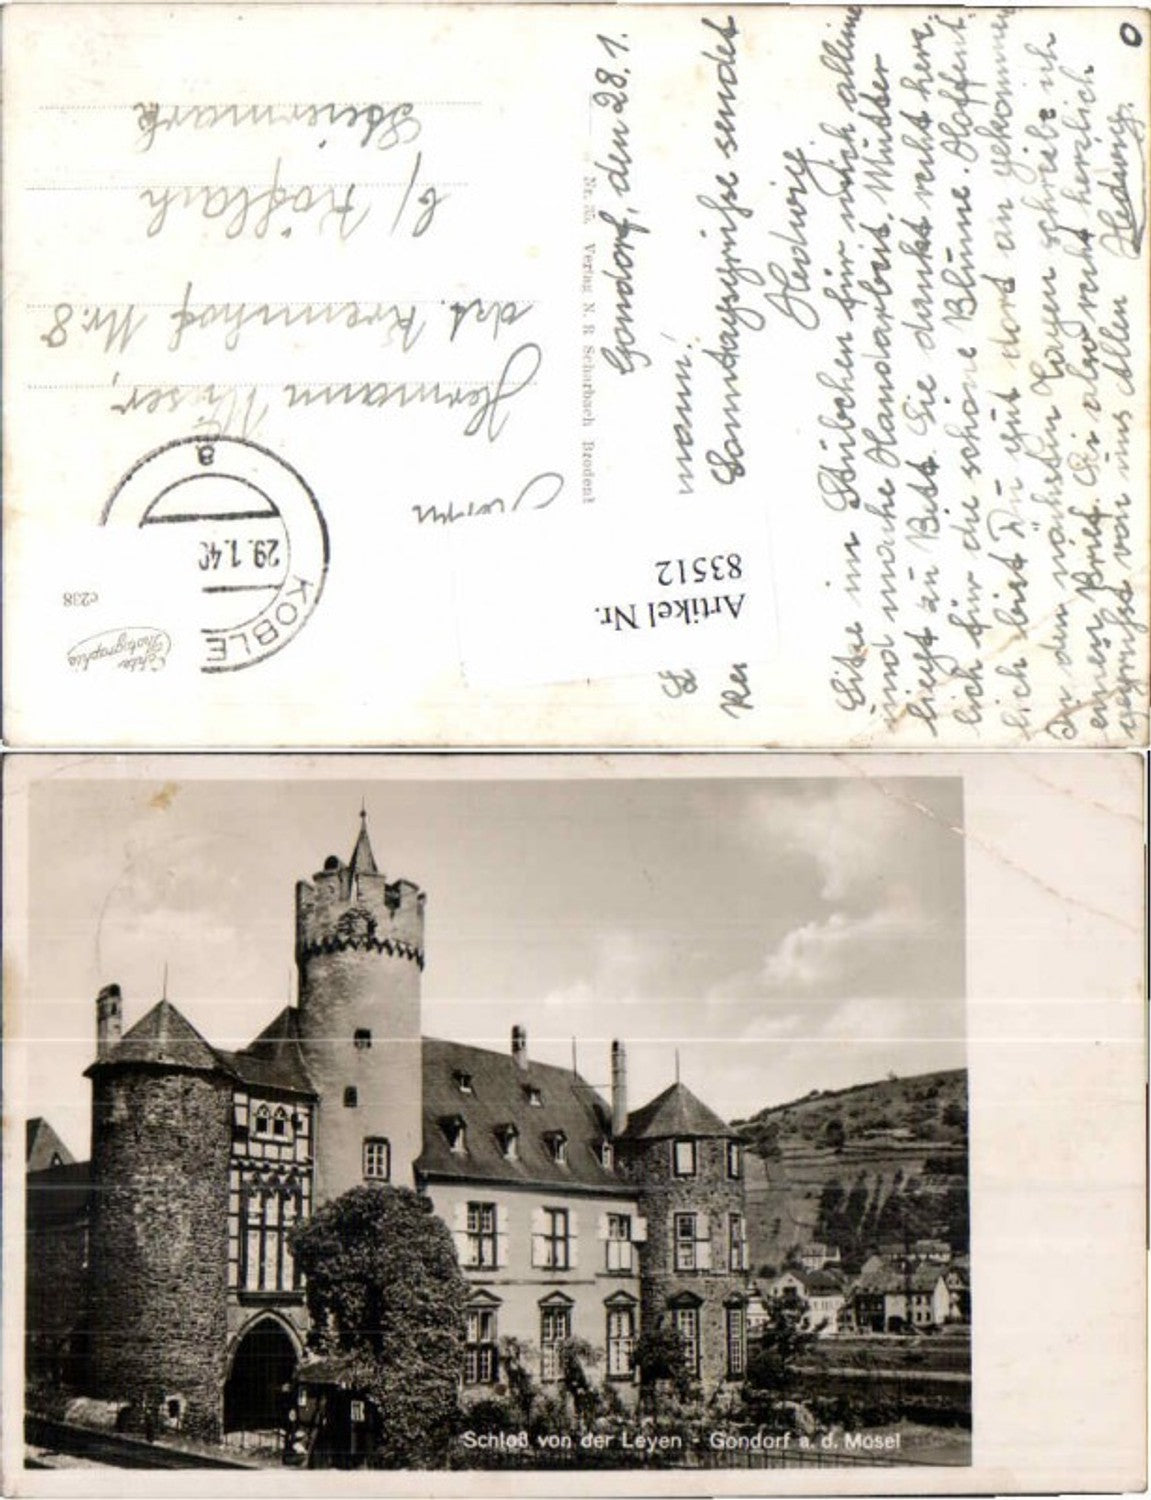 Gondorf, den 28.1.
L
mann!
Ver
Sonntagsgrüße sendet
Hedwig.
Sitze im Stübchen für mich alleine
und mache Handarbeit. Mutter
liegt zu Bett. Sie dankt recht herz-
lich für die schöne Blume. Hoffent-
lich bist Du gut dort an gekommen
In den nächsten Tagen schreibe ich
einen Brief. Sei also recht herzlich
gegrüßt von uns Allen Hedwig.
Artikel Nr.
83512
Verlag N. R. Scharbach Brodenb
Echte
Photographie
c238
KOBLE
29.1.4
a
Herrn
Hermann Moser,
drt. Kremhof Nr. 8
b/ Köflach
Steiermark
0
Schloß von der Leyen - Gondorf a. d. Mosel